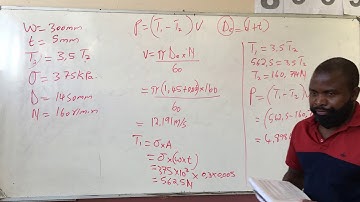 W = 300mm
t = 5mm
T₁ = 3,5 T₂
σ = 375kPa
D = 1450mm
N = 160r/min
P = (T₁ - T₂) V
V = π D₀ × N
60
= π (1,45+0,005) × 160
60
= 12,191m/s
T₁ = σ × A
= σ × (w × t)
= 375×10³ × 0,3×0,005
= 562,5N
D₀ = (d+t)
T₁ = 3,5 T₂
562,5 = 3,5 T₂
T₂ = 160,714N
P = (T₁ - T₂)
= (562,5 - 160,